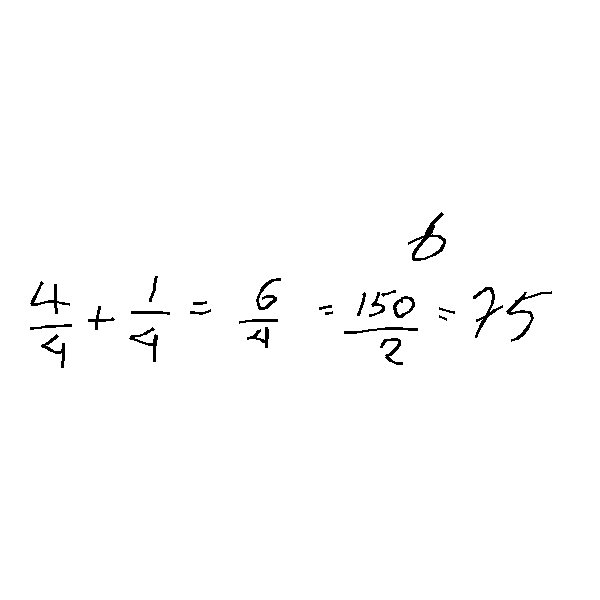 6
4/4 + 1/4 = 6/4 = 150/2 = 75